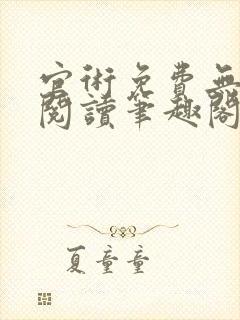 官術免費無
閱讀筆趣閣
夏童童